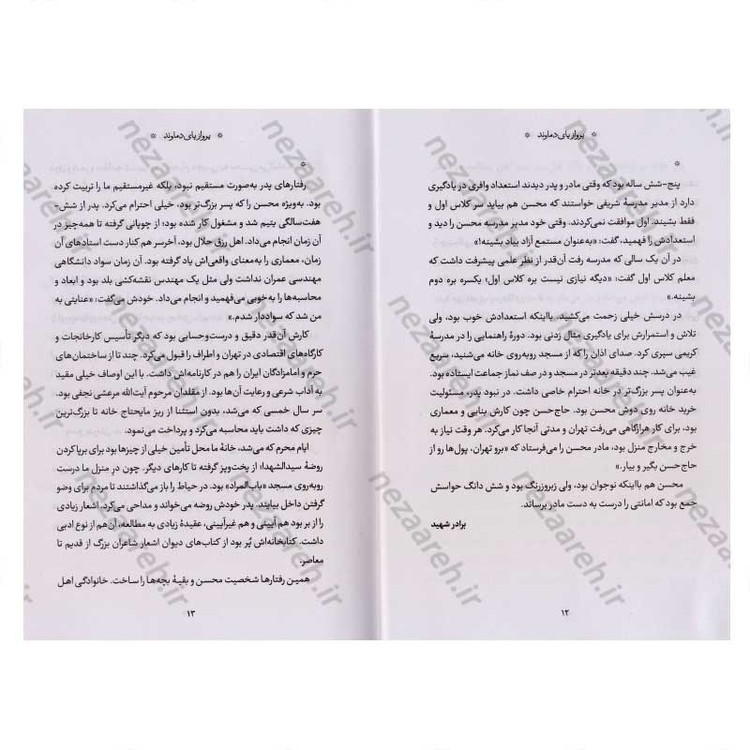 * پرواز پای دماوند *
*
پنج-شش ساله بود که وقتی مادر و پدر دیدند استعداد وافری در یادگیری
دارد از مدیر مدرسهٔ شریفی خواستند که محسن هم بیاید سر کلاس اول و
فقط بشیند. اول موافقت نمی‌کردند. وقتی خود مدیر مدرسه محسن را دید و
استعدادش را فهمید، گفت: «به‌عنوان مستمع آزاد بیاد بشینه!»
در آن یک سالی که مدرسه رفت آن‌قدر از نظر علمی پیشرفت داشت که
معلم کلاس اول گفت: «دیگه نیازی نیست بره کلاس اول؛ یکسره بره دوم
بشینه.»
در درسش خیلی زحمت می‌کشید. بااینکه استعدادش خوب بود، ولی
تلاش و استمرارش برای یادگیری مثال زدنی بود. دورهٔ راهنمایی را در مدرسهٔ
کریمی سپری کرد. صدای اذان را که از مسجد روبه‌روی خانه می‌شنید، سریع
غیب می‌شد. چند دقیقه بعدتر در مسجد و در صف نماز جماعت ایستاده بود.
به‌عنوان پسر بزرگ‌تر در خانه احترام خاصی داشت. در نبود پدر، مسئولیت
خرید خانه روی دوش محسن بود. حاج‌حسن چون کارش بنایی و معماری
بود، برای کار هرازگاهی می‌رفت تهران و مدتی آنجا کار می‌کرد. هر وقت نیاز به
خرج و مخارج منزل بود، مادر محسن را می‌فرستاد که «برو تهران، پول‌ها رو از
حاج‌حسن بگیر و بیار.»
محسن هم بااینکه نوجوان بود، ولی زبروزرنگ بود و شش دانگ حواسش
جمع بود که امانتی را درست به دست مادر برساند.
برادر شهید
۱۲
* پرواز پای دماوند *
*
رفتارهای پدر به‌صورت مستقیم نبود، بلکه غیرمستقیم ما را تربیت کرده
بود. به‌ویژه محسن را که پسر بزرگ‌تر بود، خیلی احترام می‌کرد. پدر از شش-
هفت‌سالگی یتیم شد و مشغول کار شده بود؛ از چوپانی گرفته تا همه‌چیز در
آن زمان انجام می‌داد. اهل رزق حلال بود، آخرسر هم کنار دست استادهای آن
زمان، معماری را به‌معنای واقعی‌اش یاد گرفته بود. آن زمان سواد دانشگاهی
مهندسی عمران نداشت ولی مثل یک مهندس نقشه‌کشی بلد بود و ابعاد و
محاسبه‌ها را به‌خوبی می‌فهمید و انجام می‌داد. خودش می‌گفت: «عنایتی به
من شد که سواددار شدم.»
کارش آن‌قدر دقیق و درست‌وحسابی بود که دیگر تأسیس کارخانجات و
کارگاه‌های اقتصادی در تهران و اطراف را قبول می‌کرد. چند تا از ساختمان‌های
حرم و امامزادگان ایران را هم در کارنامه‌اش داشت. با این اوصاف خیلی مقید
به آداب شرعی و رعایت آن‌ها بود. از مقلدان مرحوم آیت‌الله مرعشی نجفی بود.
سر سال خمسی که می‌شد، بدون استثنا از ریز مایحتاج خانه تا بزرگ‌ترین
چیزی که داشت باید محاسبه می‌کرد و پرداخت می‌نمود.
ایام محرم که می‌شد، خانهٔ ما محل تأمین خیلی از چیزها بود برای برپا کردن
روضهٔ سیدالشهدا؛ از پخت‌وپز گرفته تا کارهای دیگر. چون درِ منزل ما درست
روبه‌روی مسجد «باب‌المراد» بود. در حیاط را باز می‌گذاشتند تا مردم برای وضو
گرفتن داخل بیایند. پدر خودش روضه می‌خواند و مداحی می‌کرد. اشعار زیادی
را از بر بود هم آیینی و هم غیرآیینی، عقیدهٔ زیادی به مطالعه، آن هم از نوع ادبی
داشت. کتابخانه‌اش پُر بود از کتاب‌های دیوان اشعار شاعران بزرگ از قدیم تا
معاصر.
همین رفتارها شخصیت محسن و بقیهٔ بچه‌ها را ساخت. خانوادگی اهل
۱۳
nezaareh.ir
nezaareh.ir
nezaareh.ir
nezaareh.ir
nezaareh.ir
nezaareh.ir